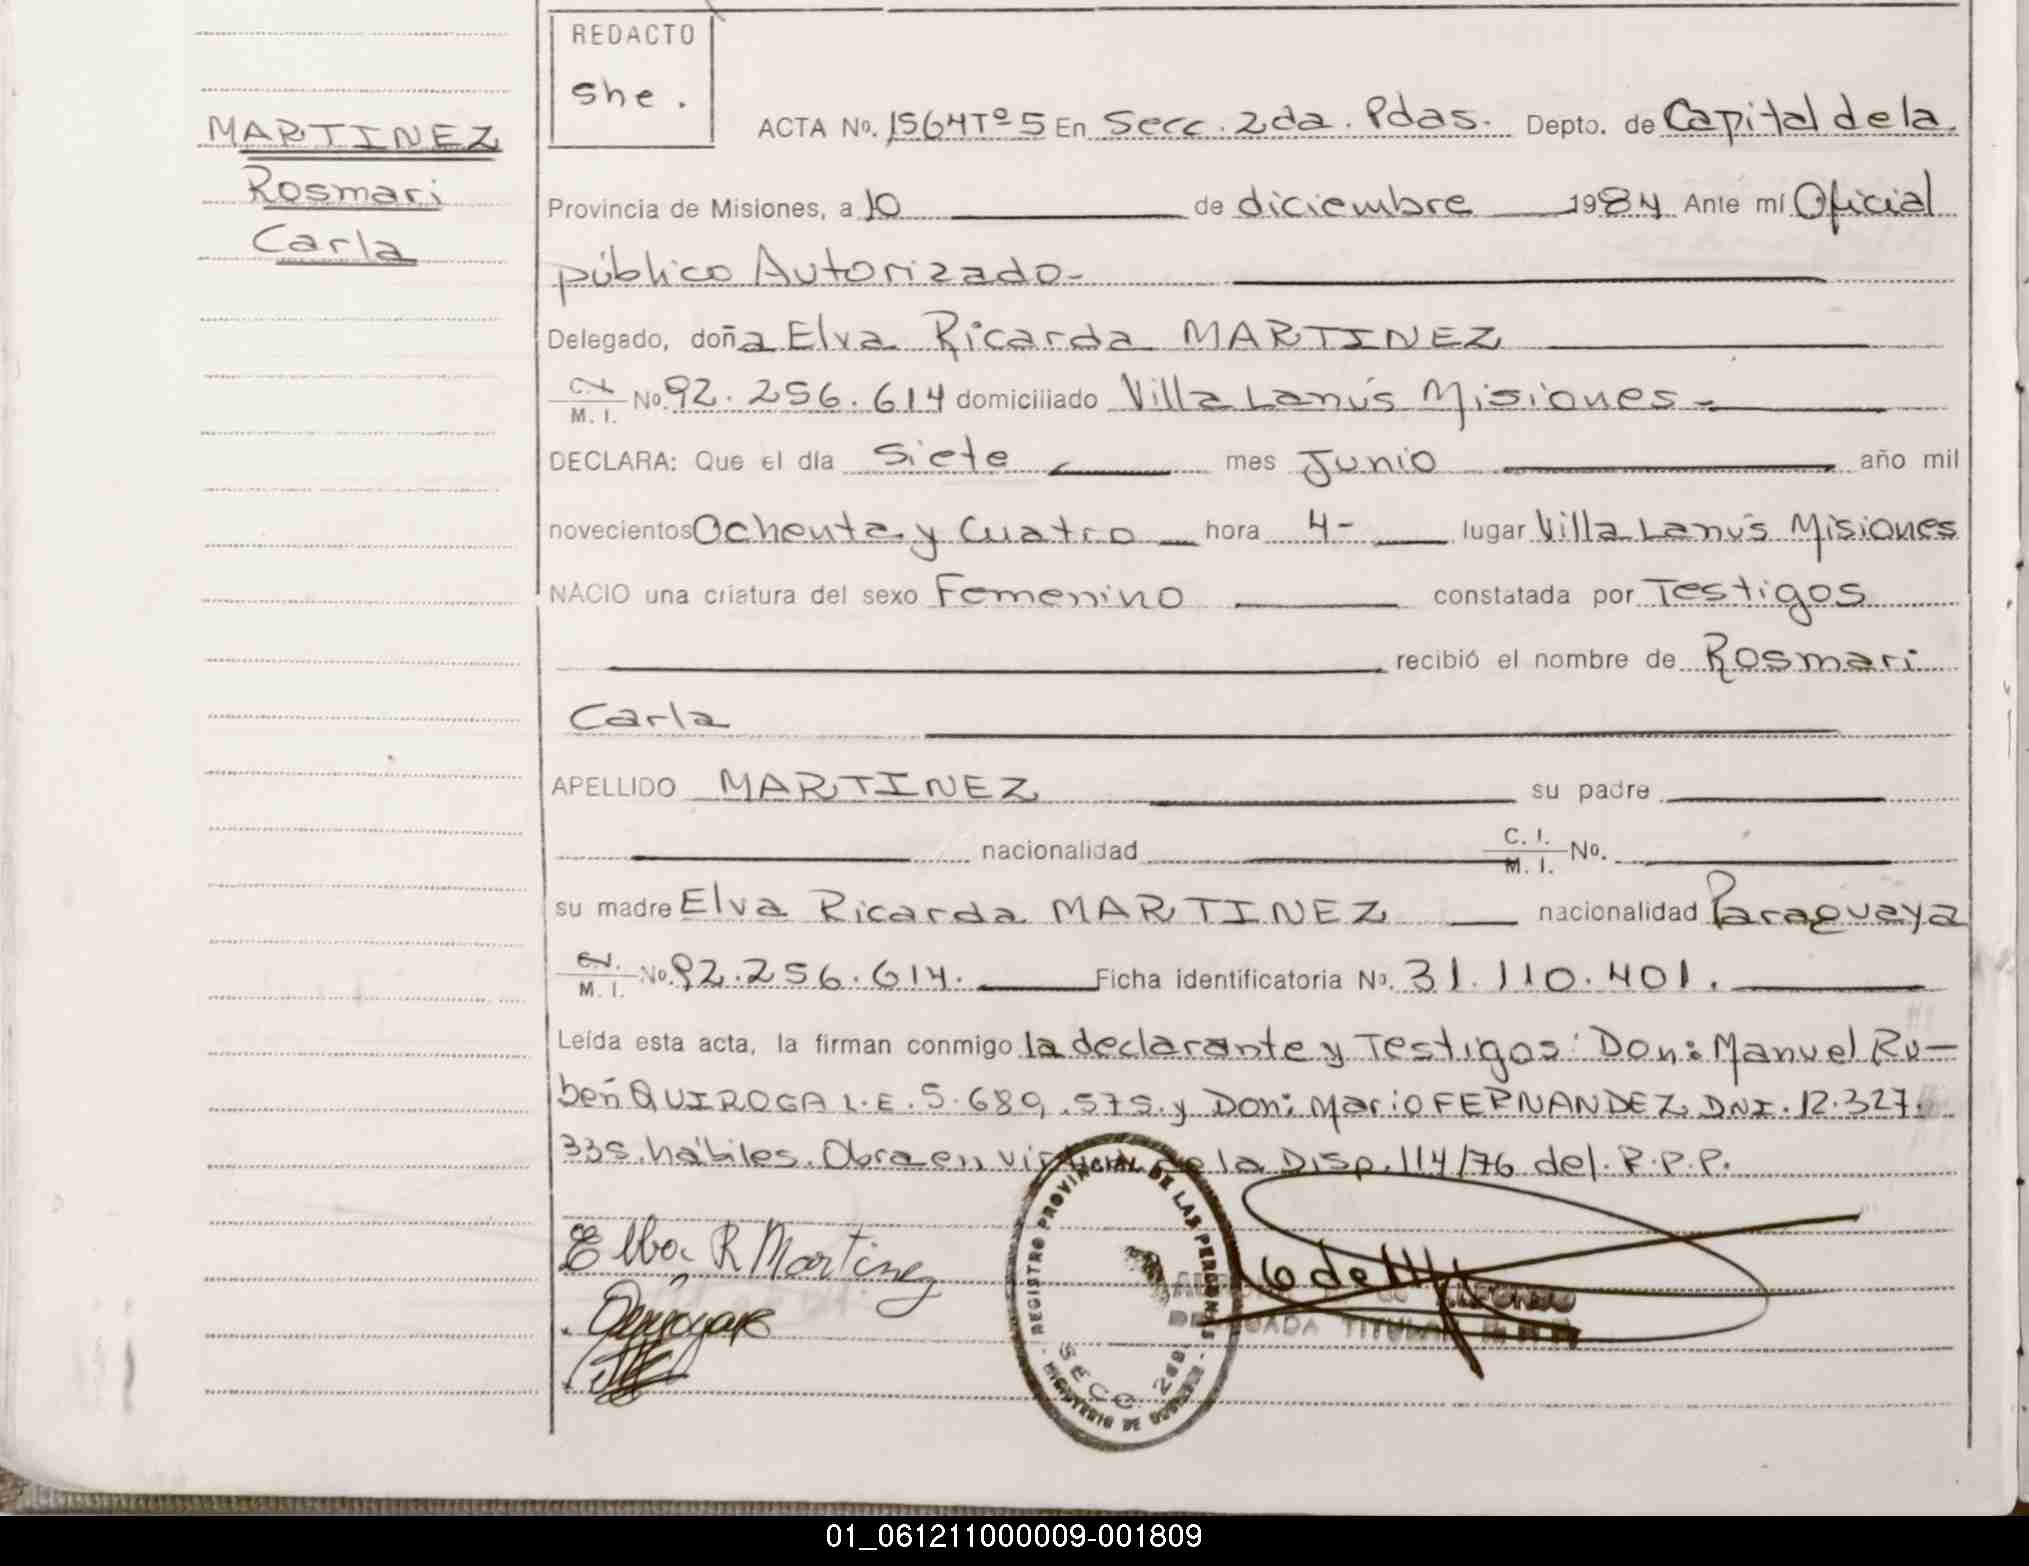 REDACTO
she.
MARTINEZ
Rosmari
Carla
ACTA No. 1564 Tº 5 En Secc. 2da. Pdas. Depto. de Capital de la
Provincia de Misiones, a 10 de diciembre 1984 Ante mí Oficial
público Autorizado-
Delegado, doña Elva Ricarda MARTINEZ
M. I. No. 92.256.614 domiciliado Villa Lanús Misiones-
DECLARA: Que el día siete mes Junio año mil
novecientos Ochenta y Cuatro hora 4- lugar Villa Lanús Misiones
NACIO una criatura del sexo Femenino constatada por Testigos
recibió el nombre de Rosmari
Carla
APELLIDO MARTINEZ su padre
nacionalidad C. I. M. I. No.
su madre Elva Ricarda MARTINEZ nacionalidad Paraguaya
M. I. No. 92.256.614. Ficha identificatoria No. 31.110.401.
Leída esta acta, la firman conmigo la declarante y Testigos: Don: Manuel Ru-
ben QUIROGA L.E. 5.689.575. y Don: Mario FERNANDEZ DNI. 12.327.
335. hábiles. Obra en virtud de la Disp. 114/76 del. R.P.P.
Elba R Martinez
REGISTRO PROVINCIAL DE LAS PERSONAS
SECC. 2da
MINISTERIO DE GOBIERNO
ALFONSO
TITULAR
01_061211000009-001809